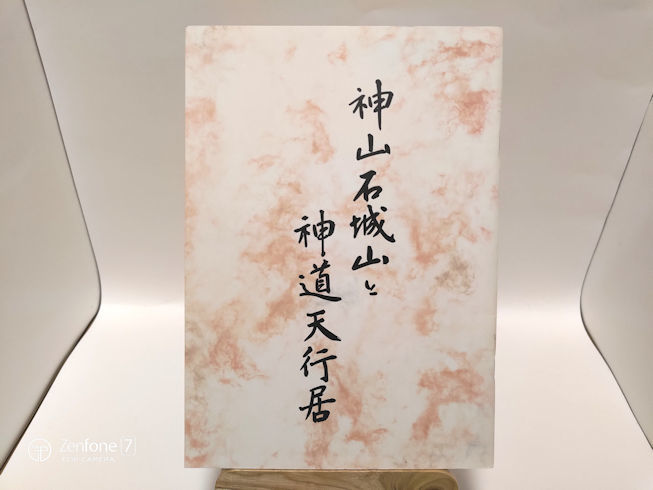 神山石城山と
神道天行居
Zenfone 7